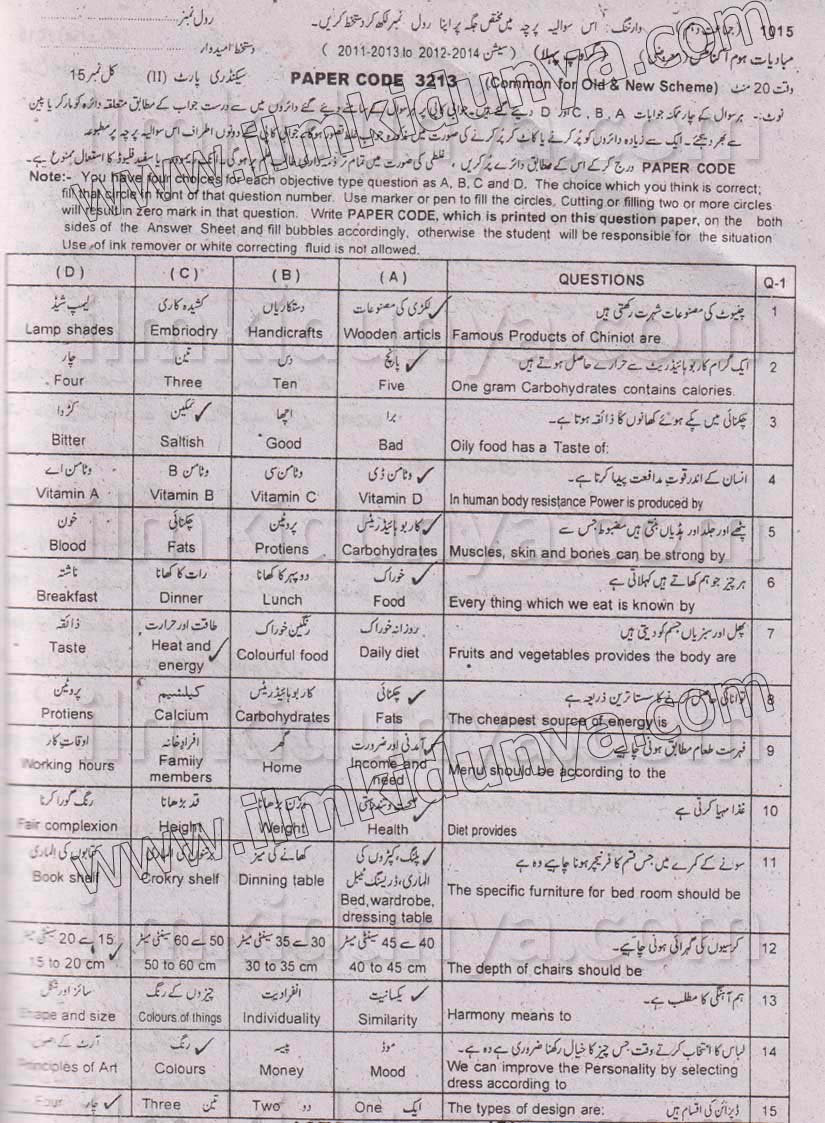 1015 (جماعت دہم) وارننگ: اس سوالیہ پرچہ میں مختص جگہ پر اپنا رول نمبر لکھ کر دستخط کریں۔ رول نمبر
مبادیات ہوم اکنامکس (معروضی) (گروپ پہلا) (سیشن 2011-2013 to 2012-2014) دستخط امیدوار
وقت 20 منٹ (Common for Old & New Scheme) PAPER CODE 3213 سیکنڈری پارٹ (II) کل نمبر 15
نوٹ:- ہر سوال کے چار ممکنہ جوابات A, B, C اور D دیئے گئے ہیں۔ جوابی کاپی پر ہر سوال کے سامنے دیئے گئے دائروں میں سے درست جواب کے مطابق متعلقہ دائرہ کو مارکر یا پین
سے بھر دیجئے۔ ایک سے زیادہ دائروں کو پُر کرنے یا کاٹ کر پُر کرنے کی صورت میں مذکورہ جواب غلط تصور ہوگا۔ جوابی کاپی کے دونوں اطراف اس سوالیہ پرچہ پر مطبوعہ
PAPER CODE درج کر کے اس کے مطابق دائرے پُر کریں، غلطی کی صورت میں تمام تر ذمہ داری طالب علم پر ہوگی۔ انک ریموور یا سفید فلیوڈ کا استعمال ممنوع ہے۔
Note:- You have four choices for each objective type question as A, B, C and D. The choice which you think is correct;
fill that circle in front of that question number. Use marker or pen to fill the circles. Cutting or filling two or more circles
will result in zero mark in that question. Write PAPER CODE, which is printed on this question paper, on the both
sides of the Answer Sheet and fill bubbles accordingly, otherwise the student will be responsible for the situation
Use of ink remover or white correcting fluid is not allowed.
(D) (C) (B) (A) QUESTIONS Q-1
لیمپ شیڈ کشیدہ کاری دستکاریاں لکڑی کی مصنوعات چنیوٹ کی مصنوعات شہرت رکھتی ہیں 1
Lamp shades Embriodry Handicrafts Wooden articls Famous Products of Chiniot are
چار تین دس پانچ ایک گرام کاربوہائیڈریٹ سے حرارے حاصل ہوتے ہیں 2
Four Three Ten Five One gram Carbohydrates contains calories.
کڑوا نمکین اچھا برا چکنائی میں پکے ہوئے کھانوں کا ذائقہ ہوتا ہے۔ 3
Bitter Saltish Good Bad Oily food has a Taste of:
وٹامن اے وٹامن B وٹامن سی وٹامن ڈی انسان کے اندر قوت مدافعت پیدا کرتا ہے۔ 4
Vitamin A Vitamin B Vitamin C Vitamin D In human body resistance Power is produced by
خون چکنائی پروٹین کاربوہائیڈریٹس پٹھے اور جلد اور ہڈیاں بنتی ہیں مضبوط جس سے 5
Blood Fats Protiens Carbohydrates Muscles, skin and bones can be strong by
ناشتہ رات کا کھانا دوپہر کا کھانا خوراک ہر چیز جو ہم کھاتے ہیں کہلاتی ہے 6
Breakfast Dinner Lunch Food Every thing which we eat is known by
ذائقہ طاقت اور حرارت رنگین خوراک روزانہ خوراک پھل اور سبزیاں جسم کو دیتی ہیں 7
Taste Heat and energy Colourful food Daily diet Fruits and vegetables provides the body are
پروٹین کیلشیم کاربوہائیڈریٹس چکنائی توانائی حاصل کرنے کا سستا ترین ذریعہ ہے 8
Protiens Calcium Carbohydrates Fats The cheapest source of energy is
اوقات کار افراد خانہ گھر آمدنی اور ضرورت فہرست طعام مطابق ہونی چاہیے 9
Working hours Family members Home Income and need Menu should be according to the
رنگ گورا کرنا قد بڑھانا وزن بڑھانا صحت و تندرستی غذا مہیا کرتی ہے 10
Fair complexion Height Weight Health Diet provides
کتابوں کی الماری برتنوں کی الماری کھانے کی میز پلنگ، کپڑوں کی الماری، ڈریسنگ ٹیبل سونے کے کمرے میں جس قسم کا فرنیچر ہونا چاہیے وہ ہے 11
Book shelf Crokry shelf Dinning table Bed, wardrobe, dressing table The specific furniture for bed room should be
15 سے 20 سینٹی میٹر 50 سے 60 سینٹی میٹر 30 سے 35 سینٹی میٹر 40 سے 45 سینٹی میٹر کرسیوں کی گہرائی ہونی چاہیے۔ 12
15 to 20 cm 50 to 60 cm 30 to 35 cm 40 to 45 cm The depth of chairs should be
سائز اور شکل چیزوں کے رنگ انفرادیت یکسانیت ہم آہنگی کا مطلب ہے۔ 13
Shape and size Colours of things Individuality Similarity Harmony means to
آرٹ کے اصول رنگ پیسہ موڈ لباس کا انتخاب کرتے وقت جس چیز کا خیال رکھنا ضروری ہے وہ ہے۔ 14
Principles of Art Colours Money Mood We can improve the Personality by selecting dress according to
Four چار Three تین Two دو One ایک The types of design are: ڈیزائن کی اقسام ہیں 15
www.ilmkidunya.com
www.ilmkidunya.com
ilmkidunya.com